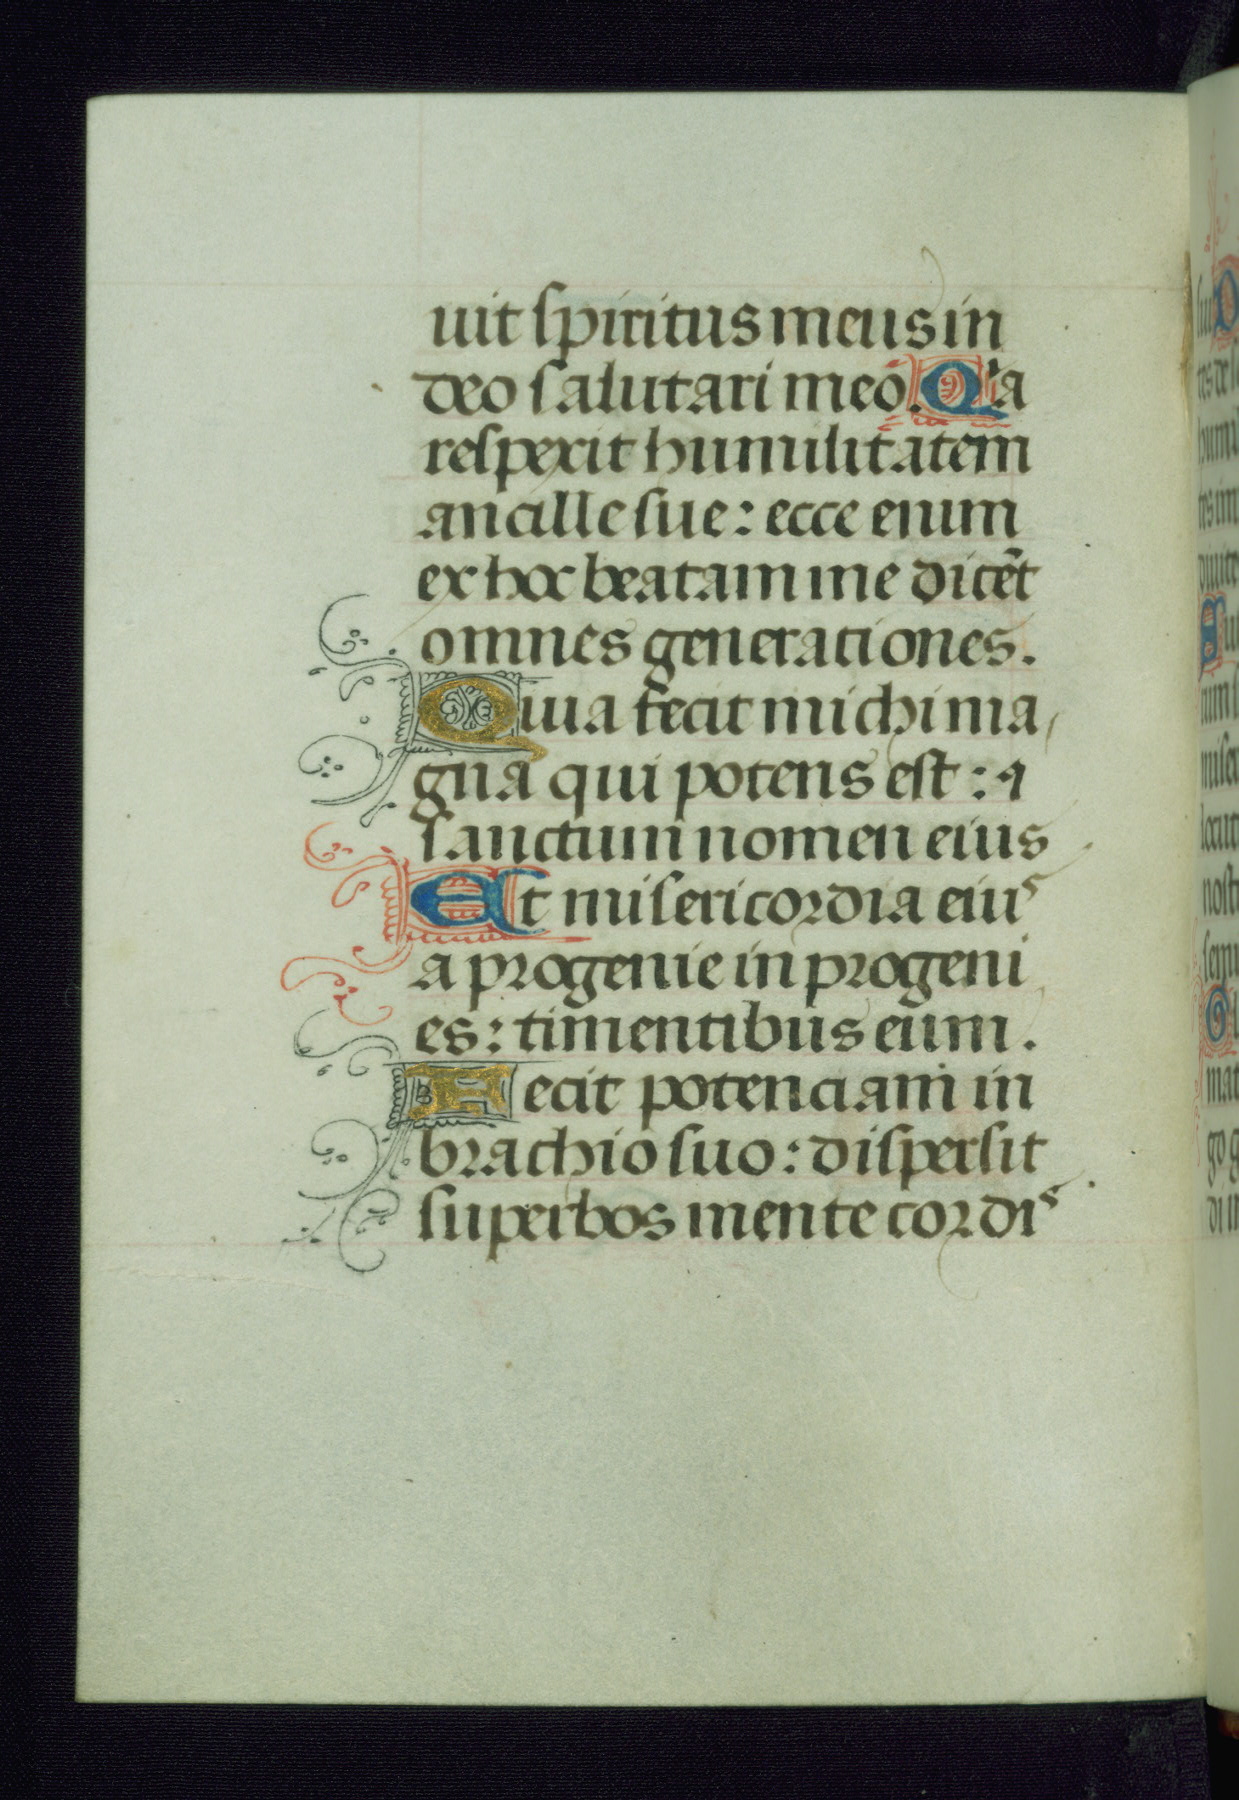 uit spiritus meus in
deo salutari meo. Qia
respexit humilitatem
ancille sue: ecce enim
ex hoc beatam me dicēt
omnes generationes.
Quia fecit michi ma
gna qui potens est: ⁊
sanctum nomen eius
Et misericordia eius
a progenie in progeni
es: timentibus eum.
Fecit potenciam in
brachio suo: dispersit
superbos mente cordis